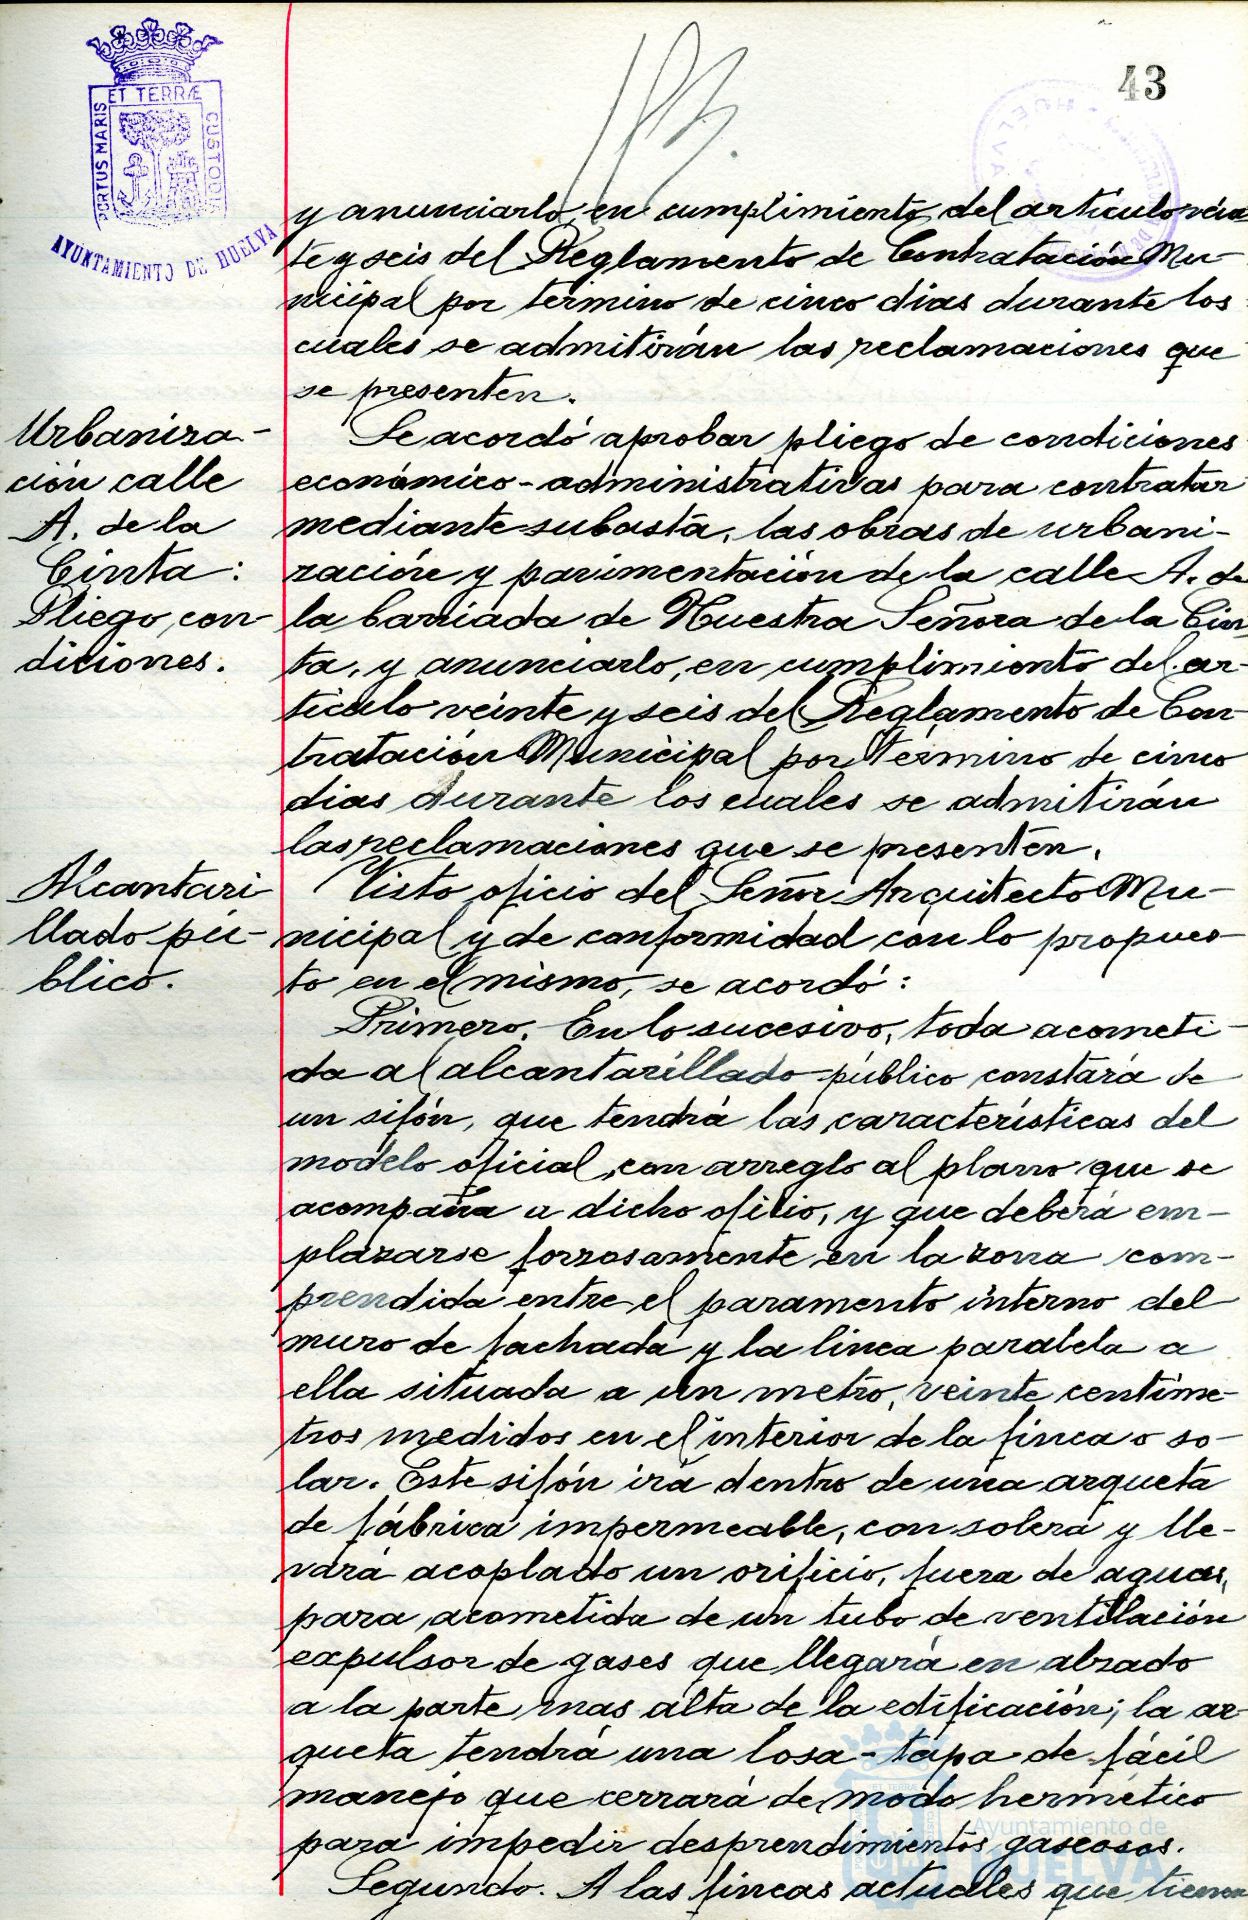 43
ET TERRÆ
PORTUS MARIS
CUSTODIA
AYUNTAMIENTO DE HUELVA
HUELVA
y anunciarlo, en cumplimiento del artículo vein
te y seis del Reglamento de Contratación Mu-
nicipal por término de cinco dias durante los
cuales se admitirán las reclamaciones que
se presenten.
Urbaniza-
ción calle
A. de la
Cinta:
Pliego con-
diciones.
Se acordó aprobar pliego de condiciones
económico-administrativas para contratar
mediante subasta, las obras de urbani-
zación y pavimentación de la calle A. de
la barriada de Nuestra Señora de la Cin
ta, y anunciarlo, en cumplimiento del ar-
tículo veinte y seis del Reglamento de Con-
tratación Municipal por término de cinco
dias durante los cuales se admitirán
las reclamaciones que se presenten.
Alcantari
llado pú-
blico.
Visto oficio del Señor Arquitecto Mu-
nicipal y de conformidad con lo propues-
to en el mismo, se acordó:
Primero. En lo sucesivo, toda acometi-
da al alcantarillado público constará de
un sifón, que tendrá las características del
modelo oficial, con arreglo al plano que se
acompaña a dicho oficio, y que deberá em-
plazarse forzosamente en la zona com-
prendida entre el paramento interno del
muro de fachada y la linea paralela a
ella situada a un metro, veinte centíme-
tros medidos en el interior de la finca o so-
lar. Este sifón irá dentro de una arqueta
de fábrica impermeable, con solera y lle-
vará acoplado un orificio, fuera de aguas,
para acometida de un tubo de ventilación
expulsor de gases que llegará en alzado
a la parte mas alta de la edificación; la ar-
queta tendrá una losa-tapa de fácil
manejo que cerrará de modo hermético
para impedir desprendimientos gaseosos.
Segundo. A las fincas actuales que tienen
Ayuntamiento de
HUELVA